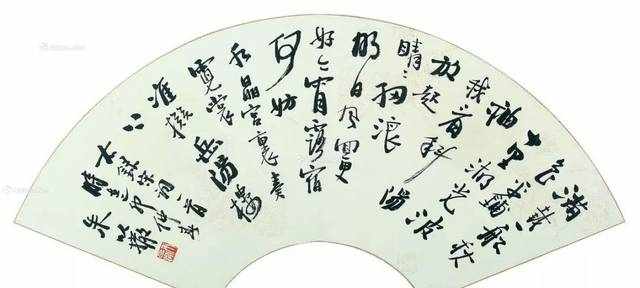 满载一船秋
色平铺
十里湖光波
神
我看斜阳
放起
细浪
明日风回更
好今宵露宿
何妨
水晶宫里奏
霓裳
准拟岳阳楼
上
右录宋词一首
朱以撒